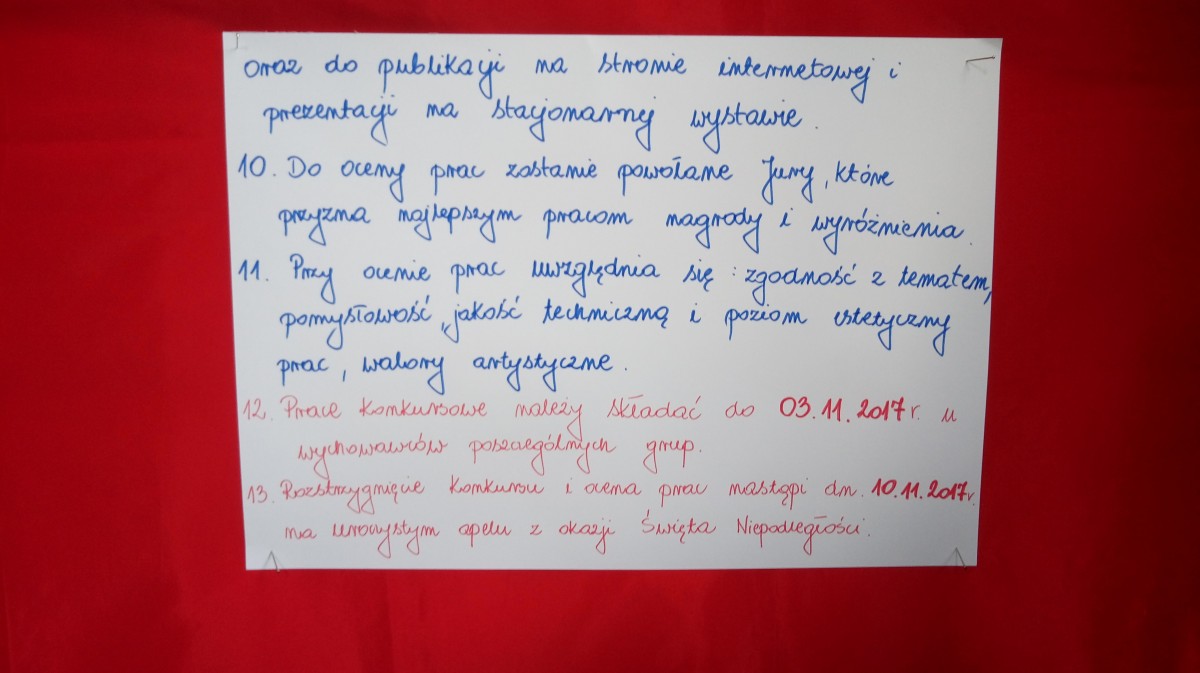 oraz do publikacji na stronie internetowej i
prezentacji na stacjonarnej wystawie.
10. Do oceny prac zostanie powołane Jury, które
przyzna najlepszym pracom nagrody i wyróżnienia.
11. Przy ocenie prac uwzględnia się: zgodność z tematem,
pomysłowość, jakość techniczną i poziom estetyczny
prac, walory artystyczne.
12. Prace konkursowe należy składać do 03.11.2017r. u
wychowawców poszczególnych grup.
13. Rozstrzygnięcie konkursu i ocena prac nastąpi dn. 10.11.2017r.
na uroczystym apelu z okazji Święta Niepodległości.